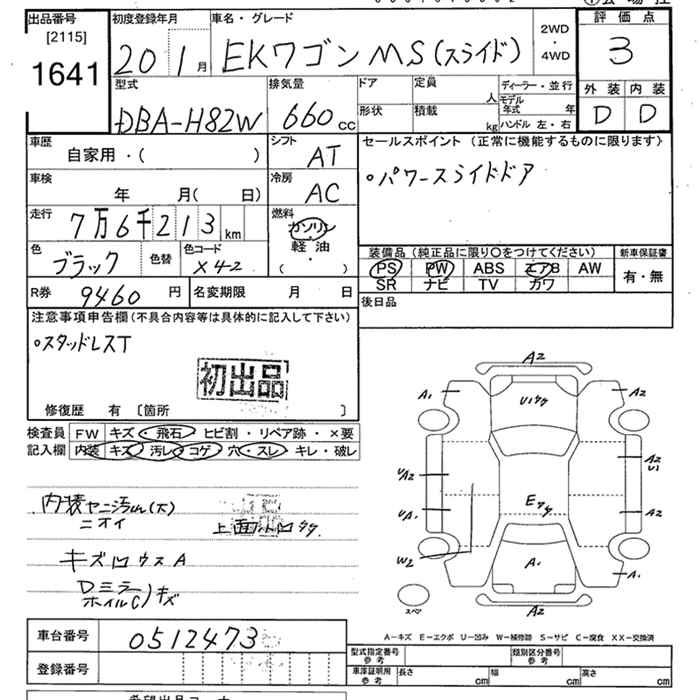 出品番号
[2115]
1641
初度登録年月
20 1月
車名・グレード
EKワゴン MS(スライド)
2WD
・
4WD
評価点
3
外装 内装
D D
型式
DBA-H82W
排気量
660 cc
ドア
形状
定員
人
積載
kg
ディーラー・並行
モデル年式 年
ハンドル 左・右
車歴
自家用・( )
シフト
AT
車検
年 月( 日)
冷房
AC
走行
7万6千213km
燃料
ガソリン
軽・油
( )
色
ブラック
色替
色コード
X42
R券
9460円
名変期限 月 日
セールスポイント (正常に機能するものに限ります)
○パワースライドドア
装備品 (純正品に限り○をつけてください)
PS PW ABS エアB AW
SR ナビ TV カワ
新車保証書
有・無
後日品
注意事項申告欄(不具合内容等は具体的に記入して下さい)
○スタッドレスT
初出品
修復歴 有 〔箇所 〕
検査員
記入欄
FW キズ・飛石・ヒビ割・リペア跡・×要
内装 キズ・汚レ・コゲ・穴・スレ・キレ・破レ
内装ヤニ汚れ(大)
ニオイ
キズロウスA
Dミラー
ホイルC)キズ
A2
A1
A2
A2
U1
U/A2
UA1
W2
A2
A1
A1
A2
スペア
A-キズ E-エクボ U-凹み W-補修跡 S-サビ C-腐食 XX-交換済
車台番号
0512473
登録番号
型式指定番号
参考
類別区分番号
参考
車庫証明用
参考
長さ cm
幅 cm
高さ cm